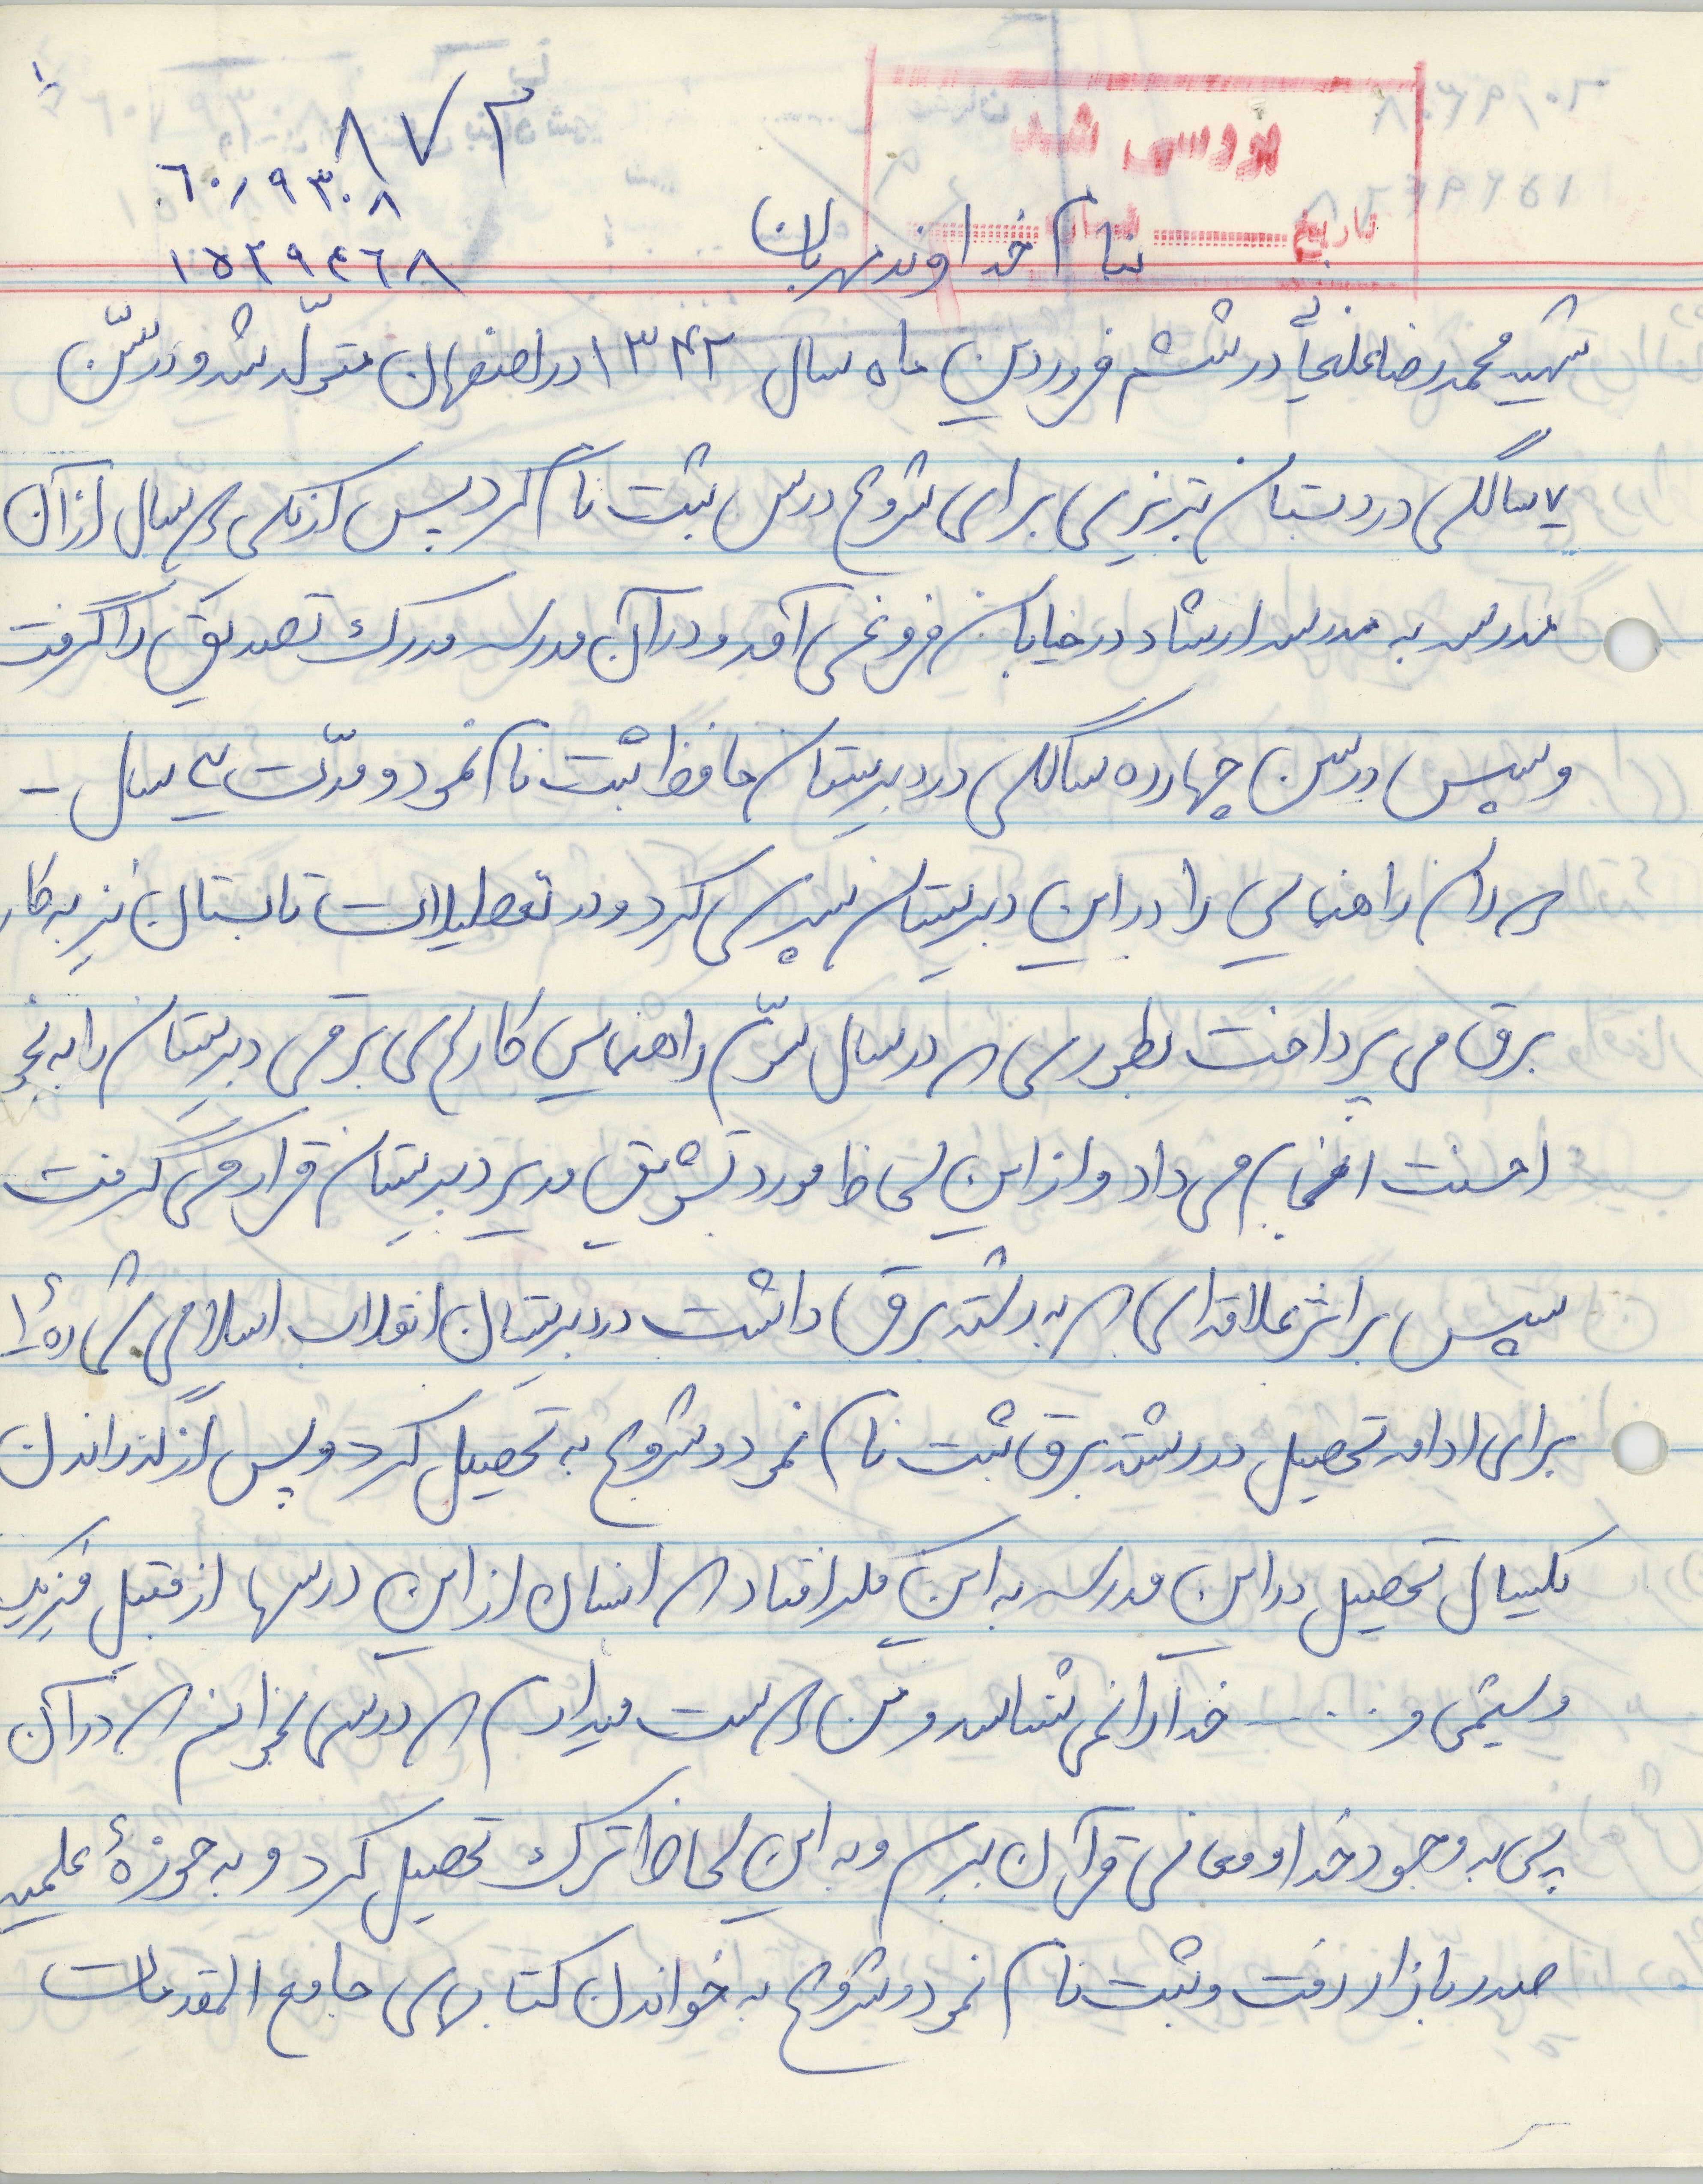 ۱
۸۷۳
۶۰/۹۳۰۸
۱۵۲۹۴۶۸
بررسی شد
تاریخ
بنام خداوند مهربان
شهید محمد رضا در ششم فروردین ماه سال ۱۳۴۲ در اصفهان متولّد شد و در سّن
۷ سالگی در دبستان تبریزی برای شروع درس ثبت نام کرد پس از یکی دو سال از آن
مدرسه به مدرسه ارشاد در خیابان فروغی آمد و در آن مدرسه مدرک تصدیق را گرفت
و سپس در سن چهارده سالگی در دبیرستان حافظ ثبت نام نمود و مدّت سه سال -
دوران راهنمایی را در این دبیرستان سپری کرد و در تعطیلات تابستان نیز به کار
برق می پرداخت بطوری که در سال سوّم راهنمایی کارهای برقی دبیرستان را به نحو
احسنت انجام می داد و از این لحاظ مورد تشویق مدیر دبیرستان قرار می گرفت
سپس بر اثر علاقه ای که به رشته برق داشت در دبیرستان انقلاب اسلامی شمارهٔ ۱
برای ادامه تحصیل در رشته برق ثبت نام نمود و شروع به تحصیل کرد و پس از گذراندن
یکسال تحصیل در این مدرسه به این فکر افتاد که انسان از این درسها از قبیل فیزیک
و شیمی و ..... خدا را نمی شناسد و من دوست میدارم که درسی بخوانم که در آن
پی به وجود خدا و معانی قرآن ببرم و به این لحاظ ترک تحصیل کرد و به حوزهٔ علمیه
صدر بازار رفت و ثبت نام نمود و شروع به خواندن کتابهای جامع المقدمات